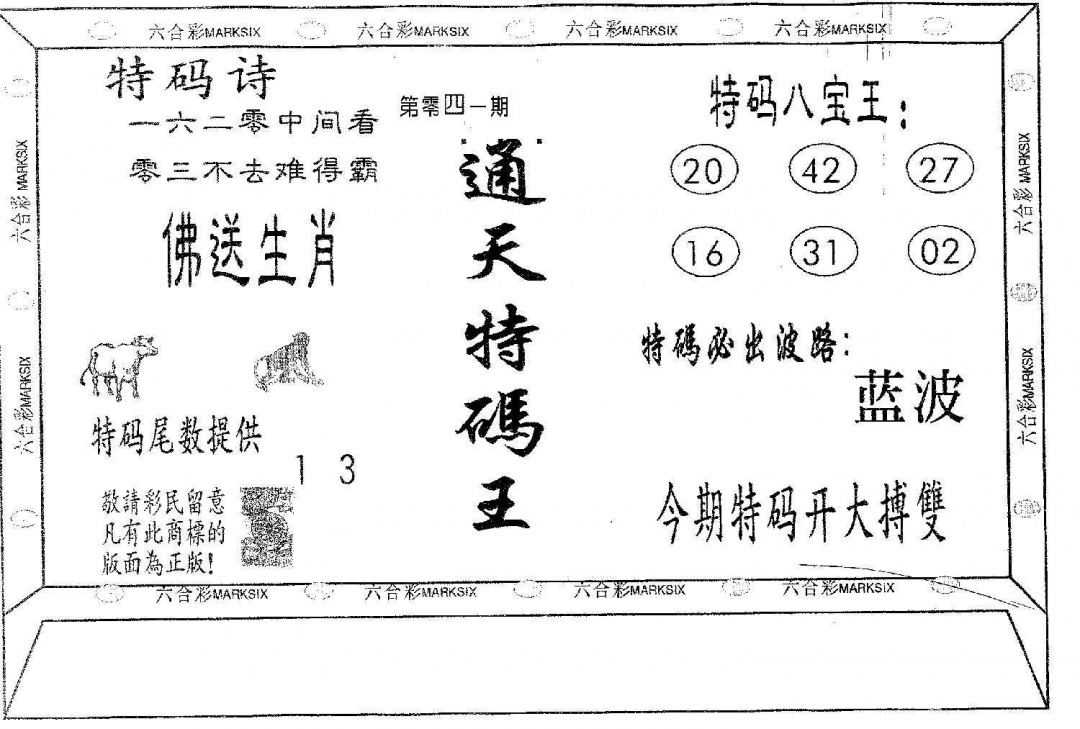 六合彩MARKSIX 六合彩MARKSIX 六合彩MARKSIX 六合彩MARKSIX
特码诗
一六二零中间看
零三不去难得霸
佛送生肖
特码尾数提供
1 3
敬請彩民留意
凡有此商標的
版面為正版!
第零四一期
通天特碼王
特码八宝王:
20 42 27
16 31 02
特碼必出波路:
蓝波
今期特码开大搏雙
六合彩MARKSIX
六合彩MARKSIX
六合彩MARKSIX
六合彩MARKSIX
六合彩MARKSIX 六合彩MARKSIX 六合彩MARKSIX 六合彩MARKSIX